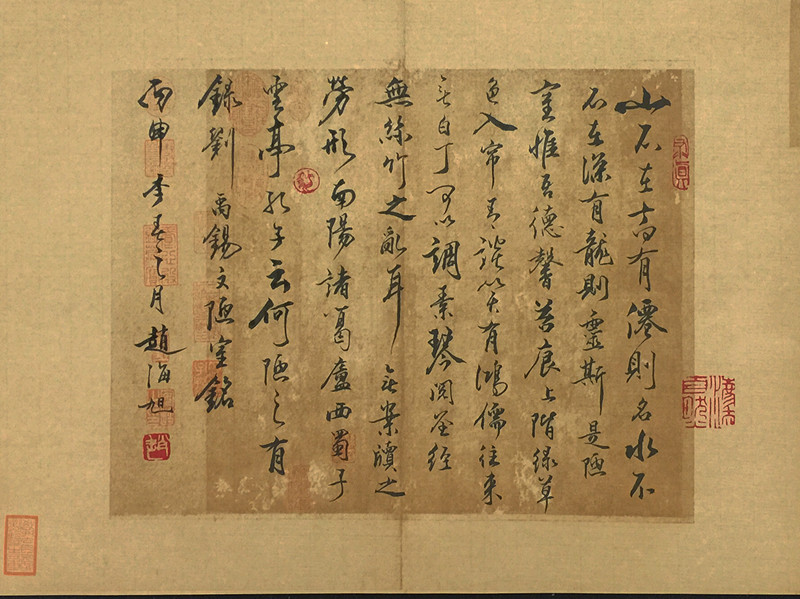 山不在高有僊則名水不
不在深有龍則靈斯是陋
室惟吾德馨苔痕上階緑草
色入帘青談笑有鴻儒往来
无白丁可以調素琴閲金經
無絲竹之亂耳无案牘之
勞形南陽諸葛廬西蜀子
雲亭孔子云何陋之有
録劉禹錫文陋室銘
丙申季春之月趙海旭